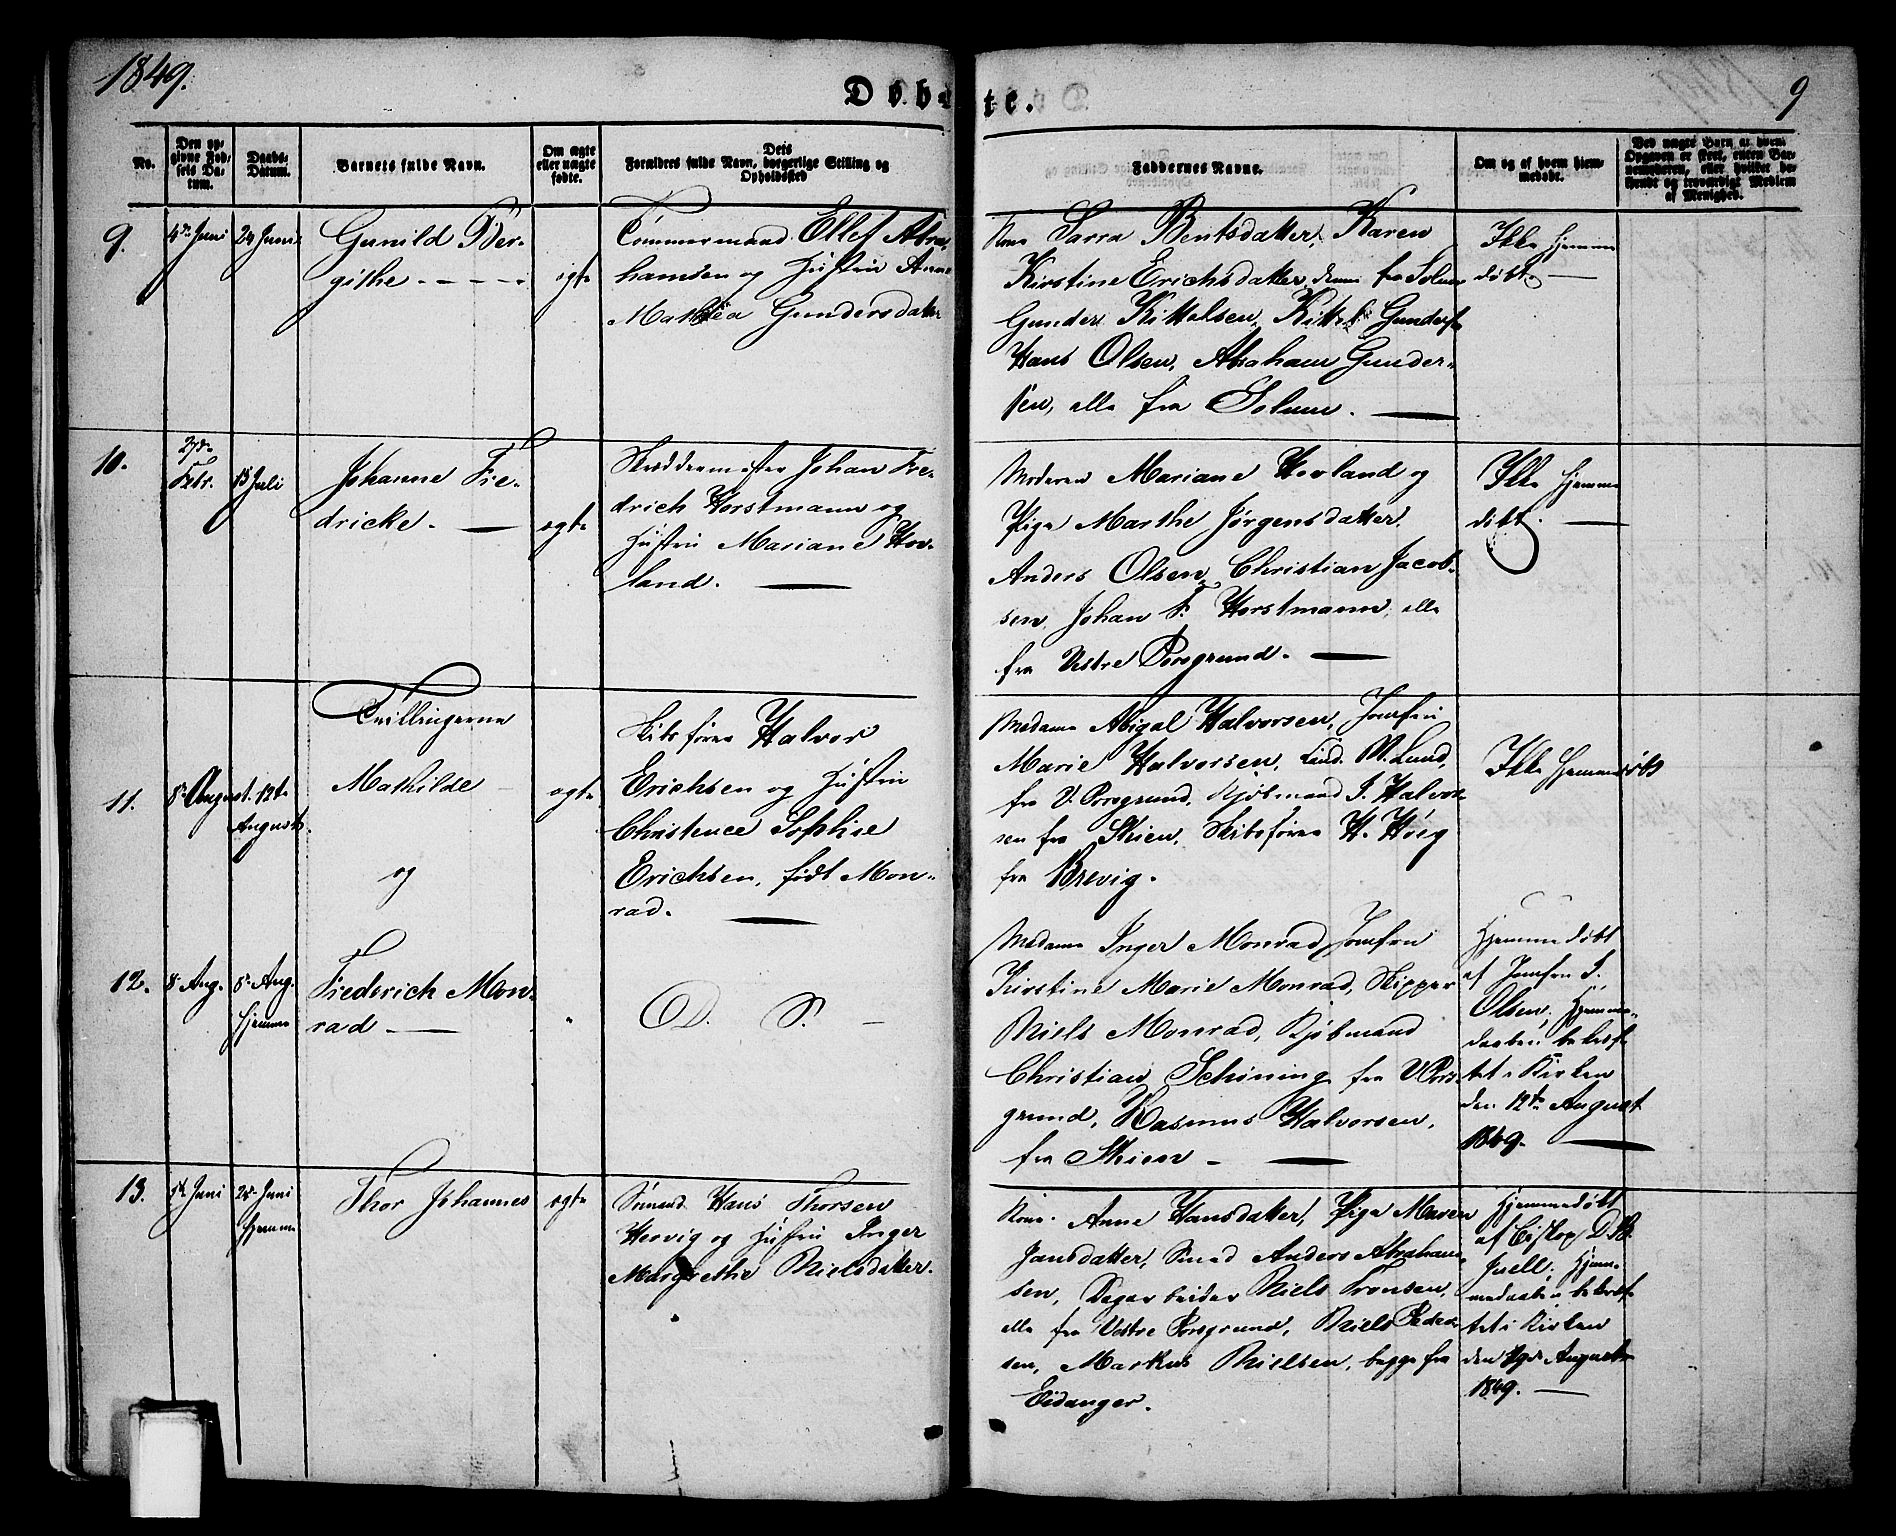 1849.
Døbte.
9
No.
Den op-
givne Fød-
sels Da-
tum.
Daabs-
Datum.
Barnets fulde Navn.
Om ægte
eller uægte
fødte.
Dets
Forældres fulde Navn, borgerlige Stilling og
Opholdssted
Faddernes Navne.
Om og af hvem hjem-
medøbt.
Ved uægte Barn af hvem
Opgaven er skeet, enten Bar-
nemoderen, eller hvilket be-
kjendt og troværdigt Medlem
af Menighed.
9.
4de Juni
24 Juni
Gunild Ber-
githe
ægte
Tømmermand Ellef Abra-
hamsen og Hustru Anne
Mathea Gundersdatter
Kone Sarra Bentsdatter, Karen
Kirstine Erichsdatter, fra Solum
Gunder Kittelsen, Kittel Gunders
Hans Olsen, Abraham Gunder-
sen, alle fra Solum.
Ikke hjemme
døbt.
10.
27de
Febr.
15 Juli
Johanne Fre-
dricke.
ægte
Skræddermester Johan Fre-
drich Horstmann og
Hustru Mariane Hov-
land.
Moderen Mariane Hovland og
Pige Marthe Jørgensdatter.
Anders Olsen, Christian Jacob-
sen, Johan F. Horstmann, alle
fra Vestre Porsgrund.
Ikke hjemme
døbt.
11.
8de August
12te
August.
Tvillingerne
Mathilde
og
ægte
Skibsfører Halvor
Erichsen og Hustru
Christence Sophise
Erichsen, født Mon-
rad.
Madame Abigal Halvorsen, Jomfru
Marie Halvorsen, N. Lund,
fra V. Porsgrund, Kjøbmand J. Halvor-
sen fra Skien, Skibsfører H. Høeg
fra Brevig.
Ikke hjemmedøbt
12.
8 Aug.
8de Aug.
hjemme
Frederich Mon-
rad
"
D. S.
Madame Inger Monrad, Jomfru
Kirstine Marie Monrad, Skipper
Niels Monrad, Kjøbmand
Christian Schøning fra V Pors-
grund, Rasmus Halvorsen,
fra Skien
Hjemmedøbt
af Jomfru I.
Olsen, Hjemme-
daaben bekræf-
tet i Kirken
den 12te August
1849.
13.
Juni
25de Juni
hjemme
Thor Johannes
ægte
Sømand Hans Thorsen
Hervig og Hustru Inger
Margrethe Nielsdatter.
Kone Anne Hansdatter, Pige Maren
Jansdatter, Smed Anders Abraham-
sen, Dagarbeider Niels Tronsen,
alle fra Vestre Porsgrund, Niels Peder-
sen, Markus Nielsen, begge fra
Eidanger.
Hjemmedøbt
af Biskop D. B.
Juell. Hjem-
medaaben bekræf-
tet i Kirken
den 19de August
1849.